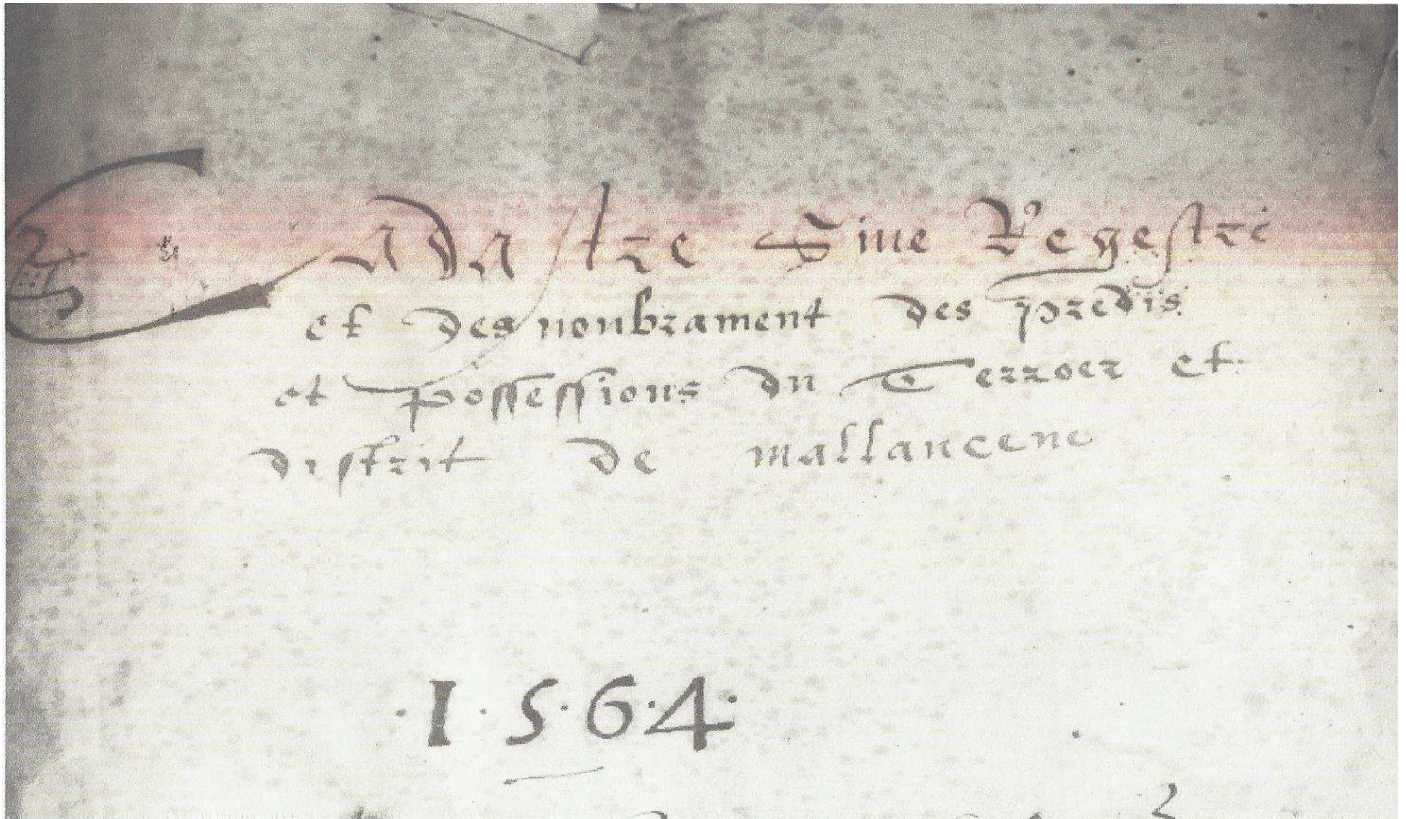 Cadastre Sive Regestre
et desnoubrament des predis
et possessions du Terroer et
distrit de mallaucene
·1·5·6·4·